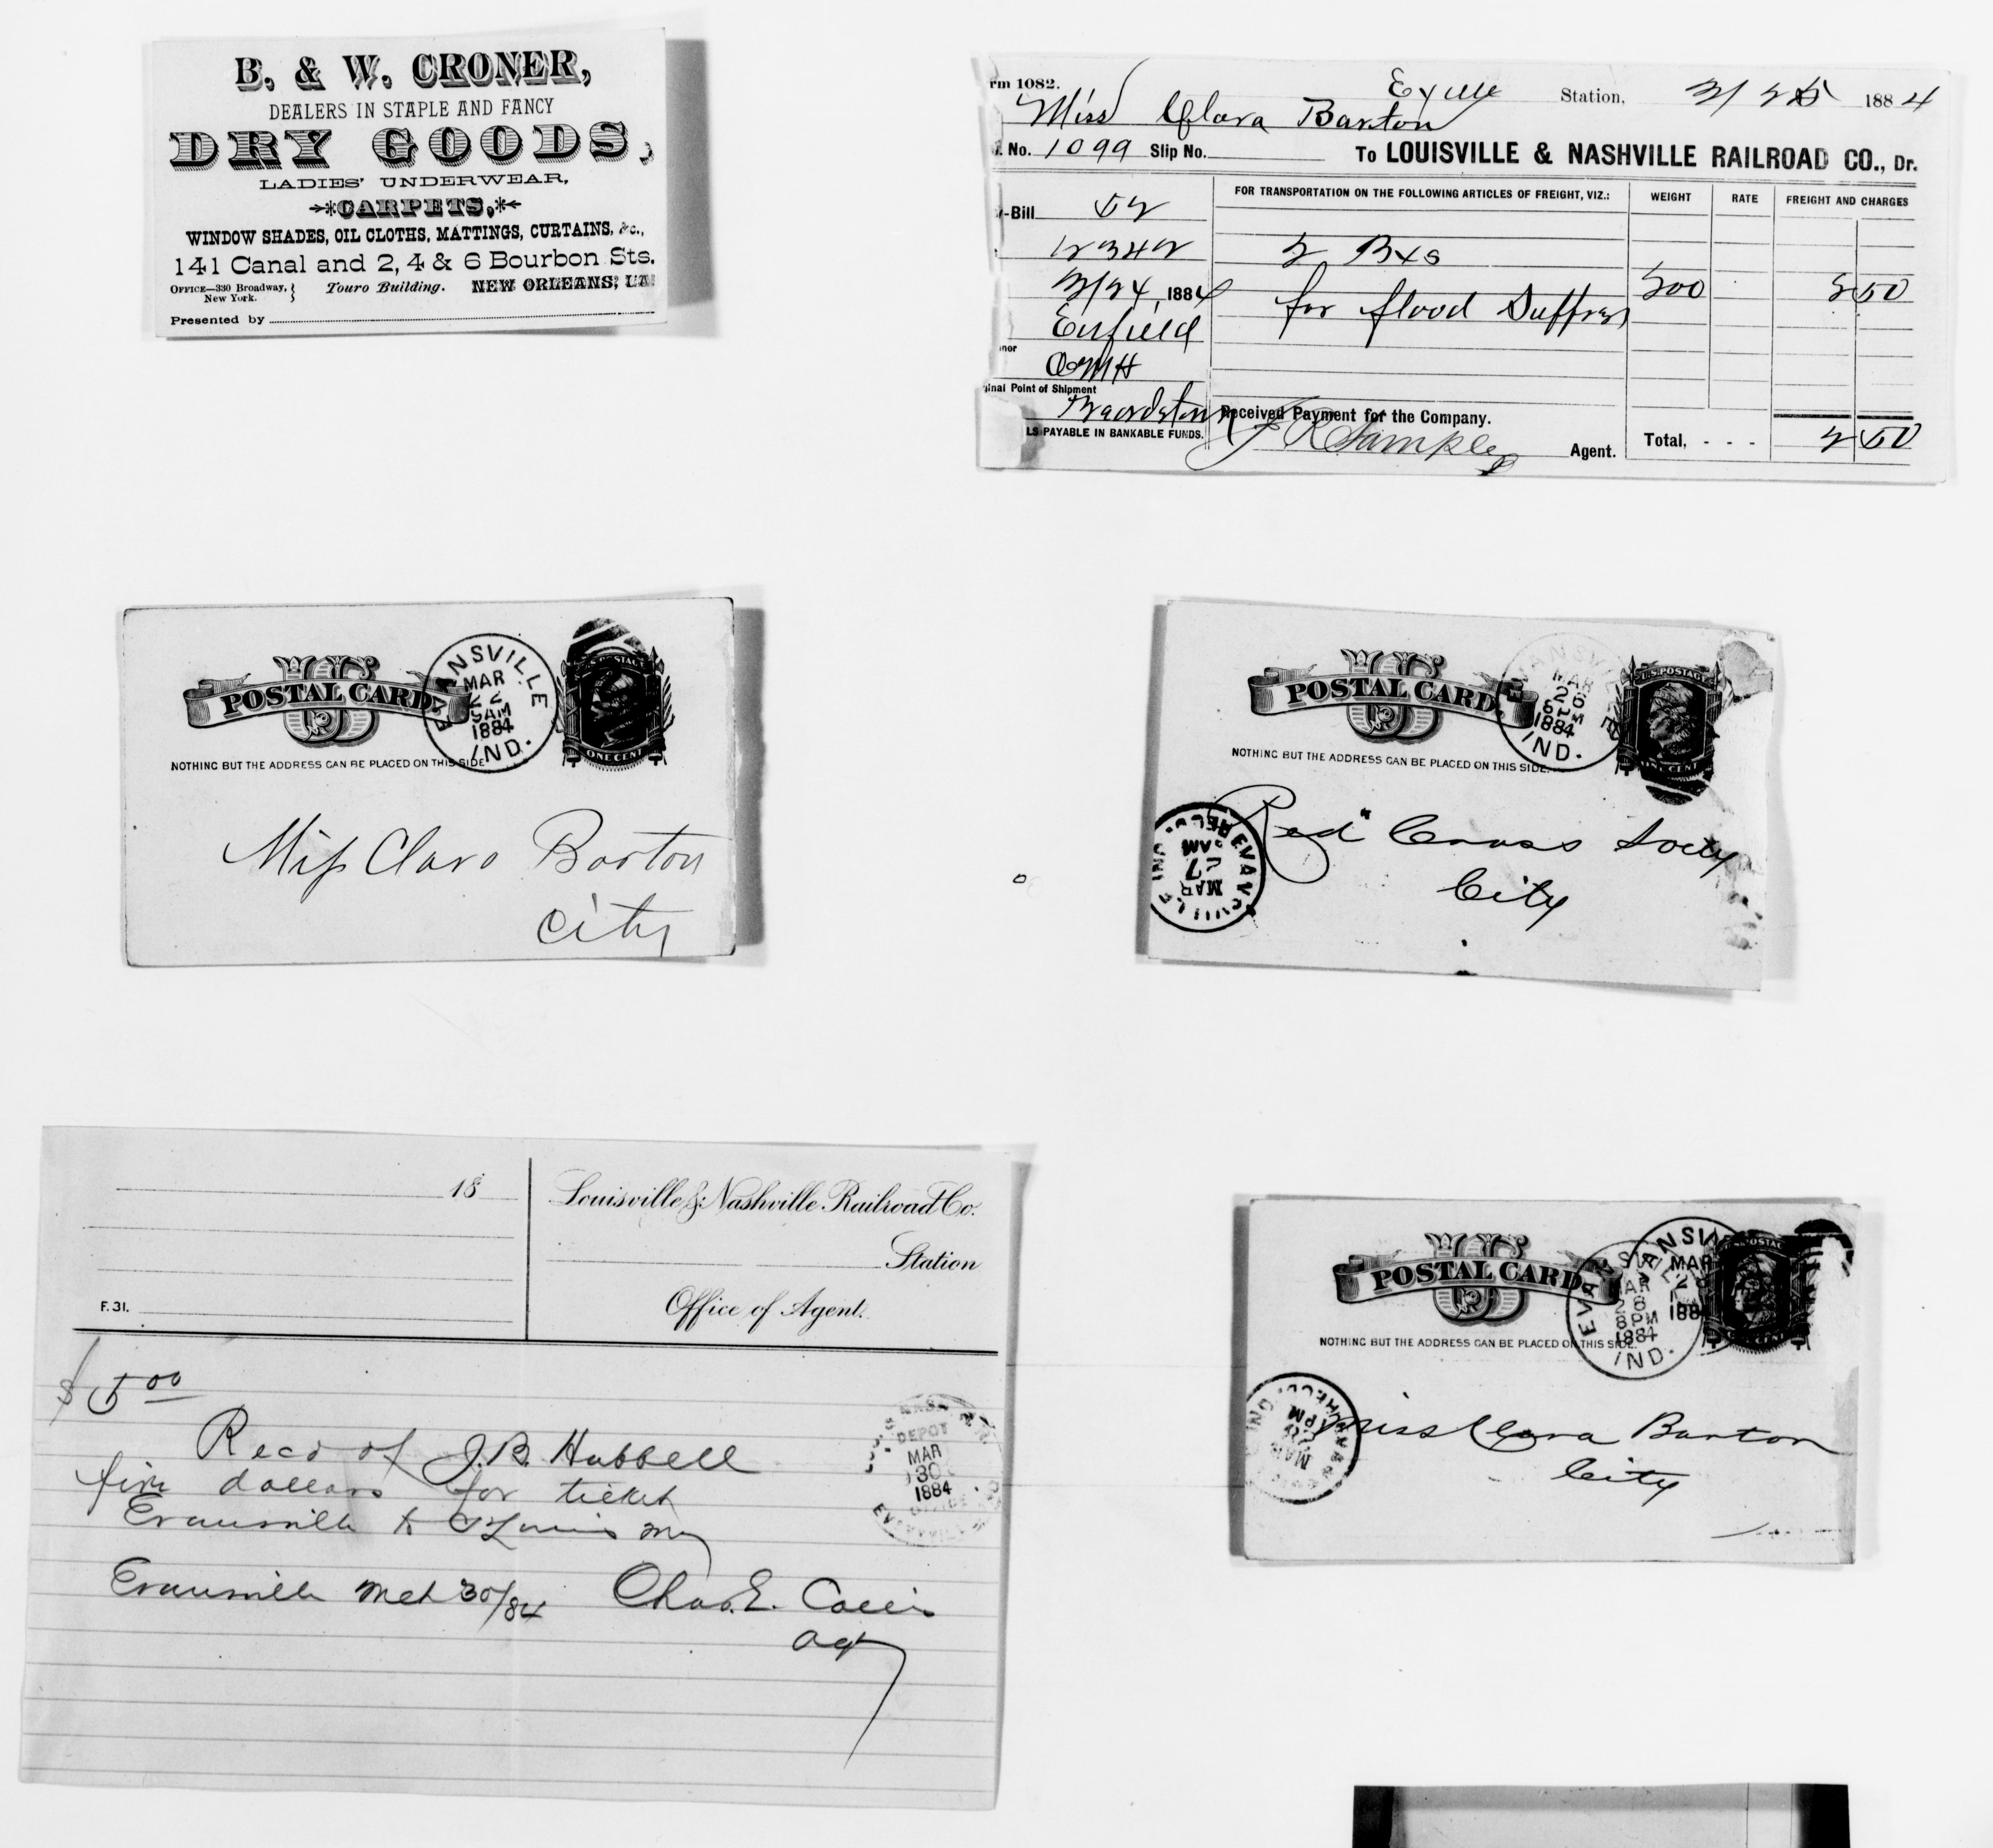 B. & W. CRONER,
DEALERS IN STAPLE AND FANCY
DRY GOODS,
LADIES' UNDERWEAR,
CARPETS,
WINDOW SHADES, OIL CLOTHS, MATTINGS, CURTAINS, &c.,
141 Canal and 2, 4 & 6 Bourbon Sts.
OFFICE—330 Broadway, New York. Touro Building. NEW ORLEANS, LA
Presented by
rm 1082. Station, 1884
Miss Clara Barton
No. 1099 Slip No. To LOUISVILLE & NASHVILLE RAILROAD CO., Dr.
FOR TRANSPORTATION ON THE FOLLOWING ARTICLES OF FREIGHT, VIZ.: WEIGHT RATE FREIGHT AND CHARGES
-Bill 52
2 Bxs
3/24, 1884 for flood Suffrers 200 2 50
Enfield
inal Point of Shipment
Received Payment for the Company.
LS PAYABLE IN BANKABLE FUNDS. Agent. Total, - - - 2 50
U S
POSTAL CARD
EVANSVILLE IND.
MAR 22 1884
U.S. POSTAGE
ONE CENT
NOTHING BUT THE ADDRESS CAN BE PLACED ON THIS SIDE
Miss Clara Barton
City
U S
POSTAL CARD.
EVANSVILLE IND.
MAR 26 8PM 1884
U.S. POSTAGE
ONE CENT
NOTHING BUT THE ADDRESS CAN BE PLACED ON THIS SIDE.
"Red" Cross Soity
City
EVANSVILLE IND REC'D
MAR 27 AM
18
Louisville & Nashville Railroad Co.
Station
F. 31.
Office of Agent.
$ 5 00
Recd of J. B. Hubbell
five dollars for ticket
Evansville to St Louis Mo
Evansville Mch 30/84 Chas. E.
agt
DEPOT
MAR
30
1884
U S
POSTAL CARD
EVANSVILLE IND.
MAR 28 8PM 1884
NOTHING BUT THE ADDRESS CAN BE PLACED ON THIS SIDE.
Miss Clara Barton
City